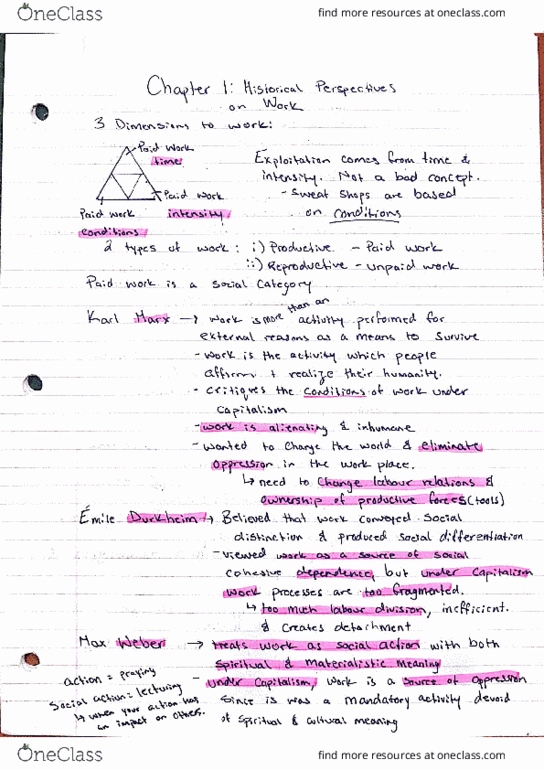 OneClass
find more resources at oneclass.com
Chapter 1: Historical Perspectives
on Work
3 Dimensions to work:
Paid work
time
Exploitation comes from time &
intensity. Not a bad concept.
- Sweat shops are based
on conditions
Paid work
intensity
Paid work
conditions
2 types of work: i) Productive - Paid work
ii) Reproductive - unpaid work
Paid work is a social category
Karl Marx → work is more than an activity performed for
external reasons as a means to survive
- work is the activity which people
affirm + realize their humanity.
- critiques the conditions of work under
capitalism
- work is alienating & inhumane
- wanted to change the world & eliminate
oppression in the work place.
↳ need to change labour relations &
ownership of productive forces (tools)
Émile Durkheim → Believed that work conveyed social
distinction & produced social differentiation
- viewed work as a source of social
cohesive dependence, but under capitalism
work processes are too fragmented.
↳ too much labour division, inefficient.
& creates detachment
Max Weber → treats work as social action with both
spiritual & materialistic meaning
- under capitalism, work is a source of oppression
since is was a mandatory activity devoid
of spiritual & cultural meaning
action = praying
social action = lecturing
↳ when your action has
an impact on others.
OneClass
find more resources at oneclass.com